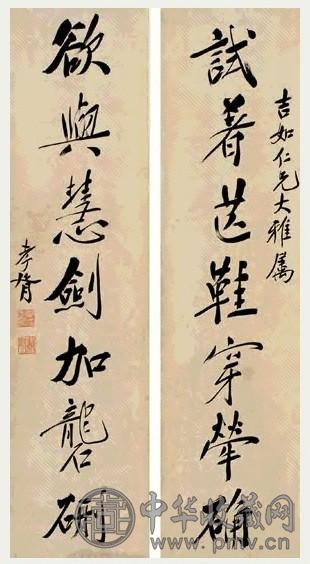 吉如仁兄大雅属
試著芒鞋穿犖确
欲與慧劍加礱硎
孝胥
中华收藏网
www.pmv.cn